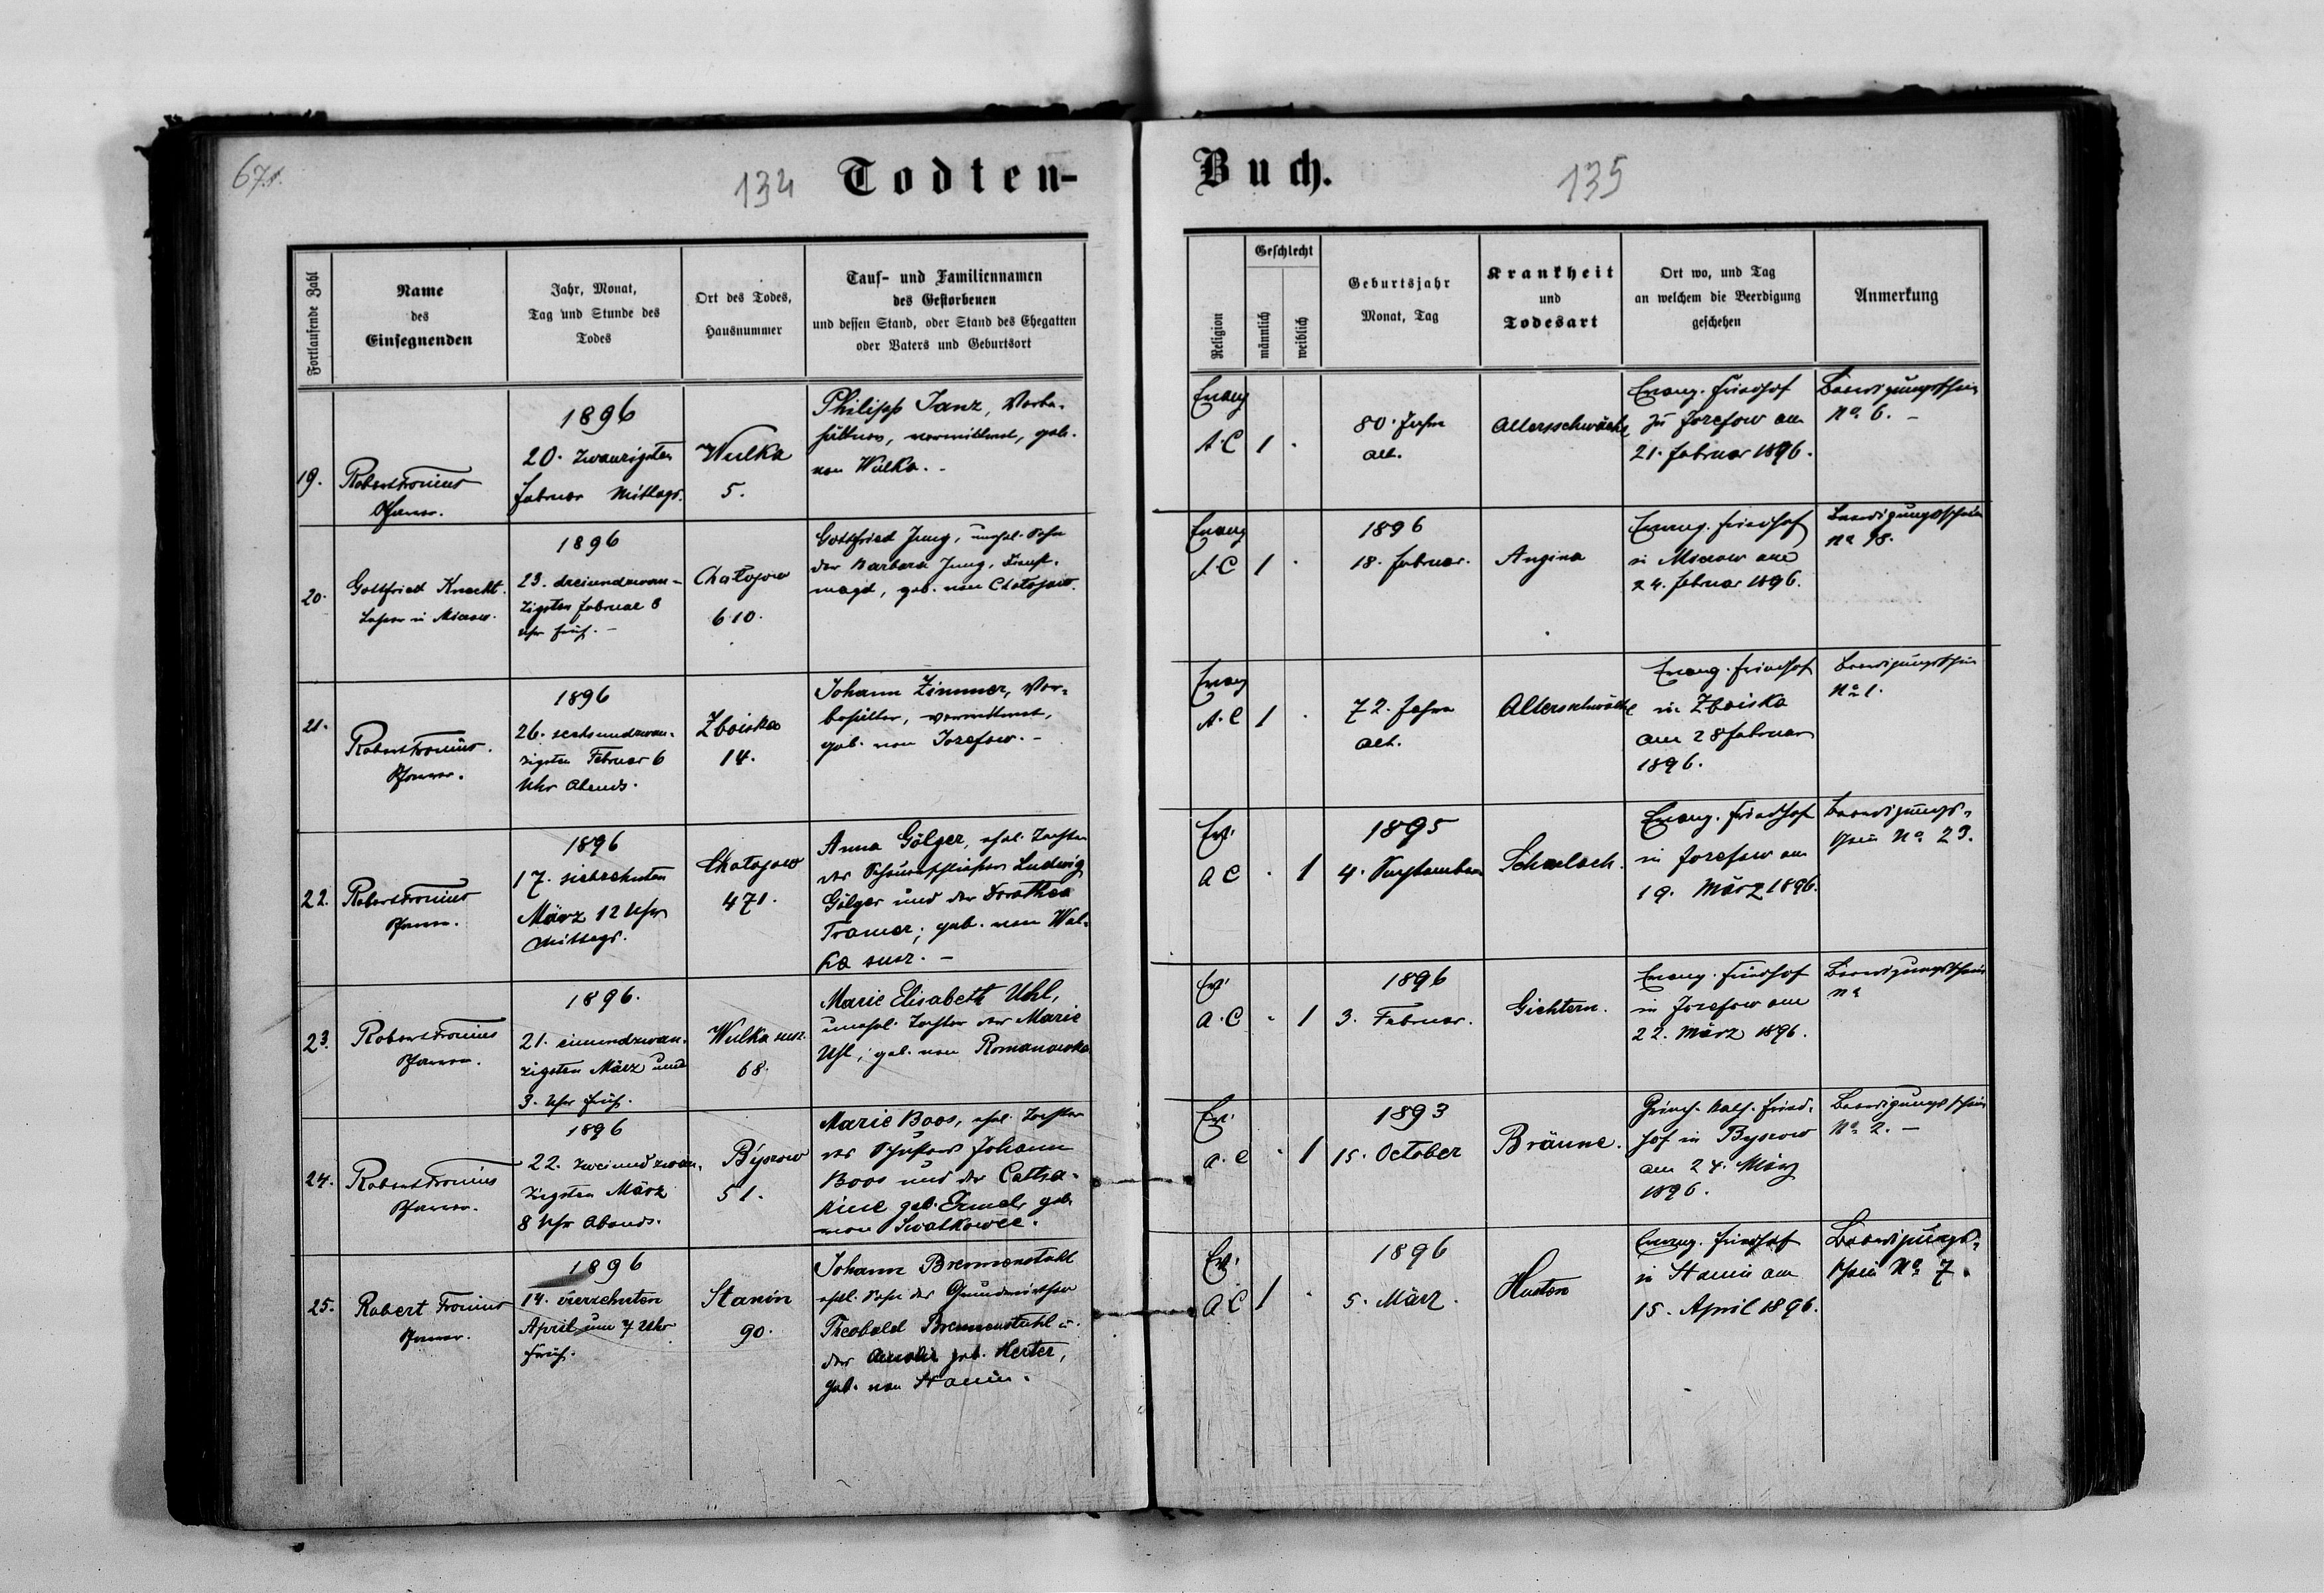 67.
134
Todten-
Buch.
135
Fortlaufende Zahl
Name
des
Einsegnenden
Jahr, Monat,
Tag und Stunde des
Todes
Ort des Todes,
Hausnummer
Tauf- und Familiennamen
des Gestorbenen
und dessen Stand, oder Stand des Ehegatten
oder Vaters und Geburtsort
Religion
Geschlecht
männlich
weiblich
Geburtsjahr
Monat, Tag
Krankheit
und
Todesart
Ort wo, und Tag
an welchem die Beerdigung
geschehen
Anmerkung
19.
Robert Fronius
Pfarrer.
1896
20. zwanzigsten
Februar Mittags.
Wulka
5.
Philipp Janz, Vorbe-
hältner, verwittwet, geb.
von Wulka. -
Evang
A.C
1
80. Jahre
alt.
Altersschwäche
Evang. Friedhof
zu Josefow am
21. Februar 1896.
Beerdigungsschein
No. 6. -
20.
Gottfried Knecht.
Lehrer in Mierow.
1896
23. dreiundzwan-
zigsten Februar 8
Uhr früh. -
Chatojow
610.
Gottfried Jung, unehel. Sohn
der Barbara Jung, Dienst-
magd, geb. von Chatojow.
Evang
A C
1
1896
18. Februar.
Angina
Evang. Friedhof
in Mierow am
24. Februar 1896.
Beerdigungsschein
No 98.
21.
Robert Fronius.
Pfarrer.
1896
26. sechsundzwan-
zigsten Februar 6
Uhr Abends.
Zboiska
14.
Johann Zimmer, Vor-
behälter, verwittwet,
geb. von Josefow. -
Evang
A.C
1
72. Jahre
alt.
Altersschwäche
Evang. Friedhof
in Zboiska
am 28 Februar
1896.
Beerdigungsschein
No 1.
22.
Robert Fronius
Pfarrer.
1896
17. siebzehnten
März 12 Uhr
Mittags.
Chatojow
471.
Anna Gölger, ehel. Tochter
des Ludwig
Gölger und der Dorothea
Tramer; geb. von Wul-
ka susz. -
Ev.
A C
1
1895
4. September
Schwach.
Evang. Friedhof
in Josefow am
19. März 1896.
Beerdigungs-
schein No 23.
23.
Robert Fronius
Pfarrer.
1896.
21. einundzwan-
zigsten März um
3. Uhr früh.
Wulka susz.
68.
Marie Elisabeth Uhl,
unehel. Tochter der Marie
Uhl; geb. von Romanowka
Ev.
A.C
1
1896
3. Februar.
Gichtern.
Evang. Friedhof
in Josefow am
22. März 1896.
Beerdigungsschein
No
24.
Robert Fronius
Pfarrer.
1896
22. zweiundzwan-
zigsten März
8 Uhr Abends.
Byszow
51.
Marie Boos, ehel. Tochter
des Schusters Johann
Boos und der Catha-
rine geb. Ermel, geb.
von Swatkowce.
Ev.
A.C
1
1893
15. October
Bräune.
Griech. kath. Fried-
hof in Byszow
am 24. März
1896.
Beerdigungsschein
No 2. -
25.
Robert Fronius
Pfarrer.
1896
14. vierzehnten
April um 7 Uhr
früh.
Stanin
90.
Johann Bremenstuhl
ehel. Sohn des Grundwirthen
Theobald Bremenstuhl u.
der geb. Herter,
geb. von Stanin.
Ev.
A.C
1
1896
5. März.
Husten
Evang. Friedhof
in Stanin am
15. April 1896.
Beerdigungs-
schein No 7.